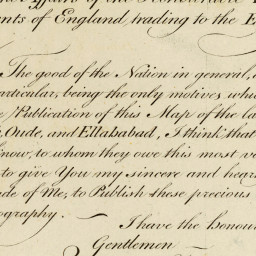 of the Honourable
ents of England trading to the E
The good of the Nation in general,
articular, being the only motives whi
Publication of this Map of the la
Oude, and Ellababad, I think that
now, to whom they owe this most v
to give You my sincere and hear
de of Me, to Publish these precious
ography.
I have the honou
Gentlemen